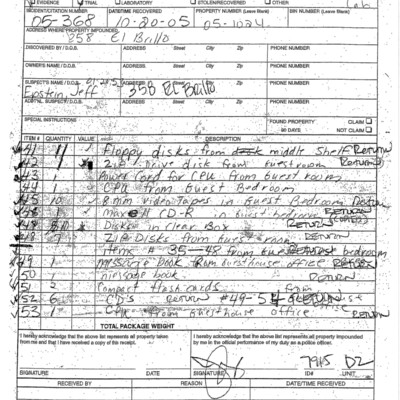 EVIDENCE TRIAL LABORATORY STOLEN/RECOVERED
INCIDENT/CITATION NUMBER DATE/TIME RECOVERED PROPERTY NUMBER (Leave Blank) BIN NUMBER (Leave Blank)
05-368 10-20-05 05-1024
ADDRESS WHERE PROPERTY IMPOUNDED
358 El Brillo
DISCOVERED BY / D.O.B. ADDRESS Street City Zip PHONE NUMBER
OWNER'S NAME / D.O.B. ADDRESS Street City Zip PHONE NUMBER
SUSPECT'S NAME / D.O.B. ADDRESS Street City Zip PHONE NUMBER
Epstein, Jeff 358 El Brillo
SUSPECT / D.O.B. ADDRESS Street City Zip PHONE NUMBER
SPECIAL INSTRUCTIONS
FOUND PROPERTY CLAIM
90 DAYS NOT CLAIM
ITEM # QUANTITY VALUE DESCRIPTION
41 Floppy disks from middle Shelf RETURN
42 Zip Drive disk from Guestroom RETURN
43 1 Power Cord for CPU from Guest room
44 1 CPU from Guest Bedroom
45 10 8mm video Tapes in Guest Bedroom
1 Maxell CD-R in Guest bedroom RETURN
Disks in Clear Box RETURN
ZIP Disks from Guest room RETURN
Items 35-48 from Guest bedroom
49 1 Message Book from guesthouse office RETURN
50 1 message book RETURN
51 2 Compact flash cards from
52 6 CD's RETURN #49-54
53 1 CPU from Guesthouse office
TOTAL PACKAGE WEIGHT
I hereby acknowledge that the above list represents all property taken
from me and that I have received a copy of this receipt.
I hereby acknowledge that the above list represents all property impounded
by me in the official performance of my duty as a police officer.
7945 D2
SIGNATURE SIGNATURE ID# UNIT
RECEIVED BY REASON DATE/TIME RECEIVED